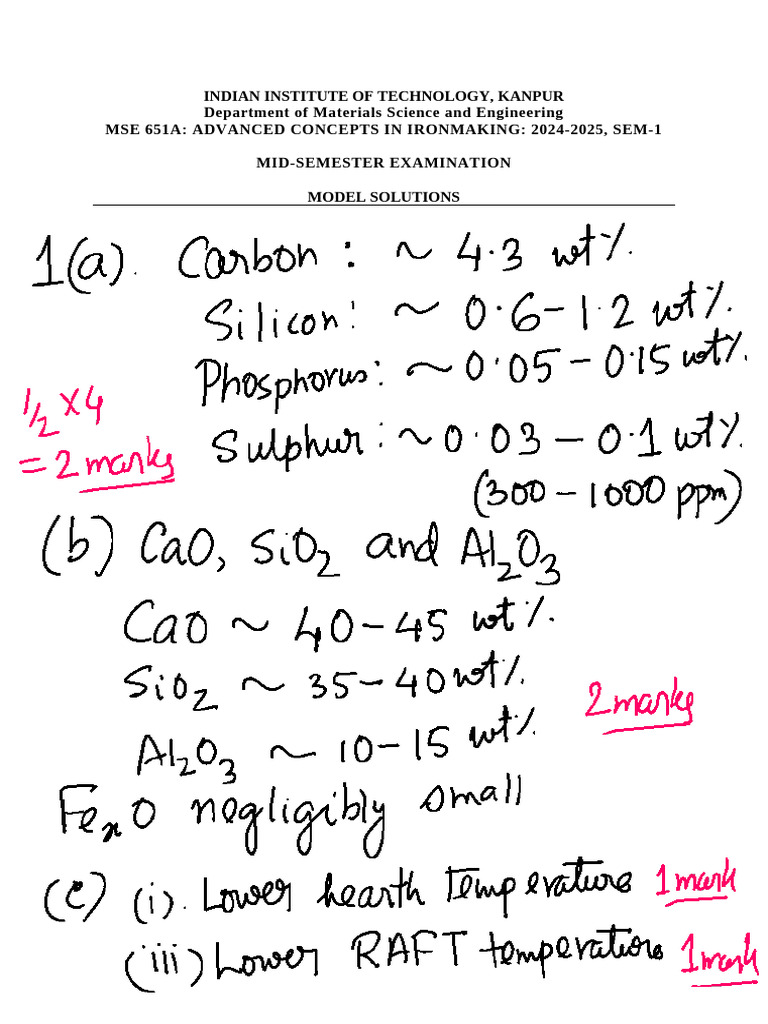 INDIAN INSTITUTE OF TECHNOLOGY, KANPUR
Department of Materials Science and Engineering
MSE 651A: ADVANCED CONCEPTS IN IRONMAKING: 2024-2025, SEM-1
MID-SEMESTER EXAMINATION
MODEL SOLUTIONS
1(a). Carbon : ~ 4.3 wt%.
Silicon: ~ 0.6-1.2 wt%.
Phosphorus: ~0.05 - 0.15 wt%.
1/2 x 4
Sulphur: ~0.03 - 0.1 wt%.
= 2 marks
(300 - 1000 ppm)
(b) CaO, SiO2 and Al2O3
CaO ~ 40-45 wt%.
SiO2 ~ 35-40 wt%.
2 marks
Al2O3 ~ 10-15 wt%.
FexO negligibly small
(c) (i). Lower hearth temperature 1 mark
(iii) Lower RAFT temperature 1 mark